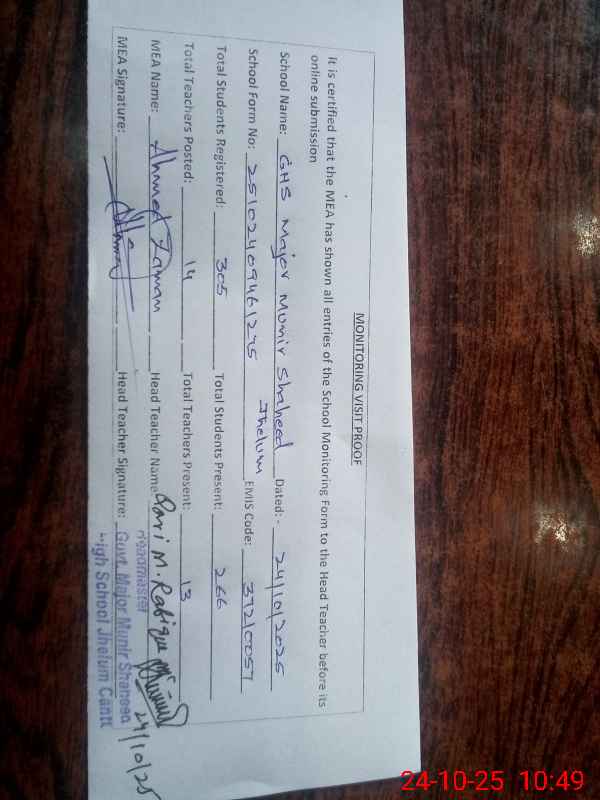 MONITORING VISIT PROOF
It is certified that the MEA has shown all entries of the School Monitoring Form to the Head Teacher before its
online submission
School Name: GHS Major Munir Shaheed Jhelum Dated:- 24/10/2025
School Form No: EMIS Code: 37210057
Total Students Registered: 305 Total Students Present: 266
Total Teachers Posted: 14 Total Teachers Present: 13
MEA Name: Ahmed Zaman Head Teacher Name Qari M. Rafique
MEA Signature: Head Teacher Signature:
Headmaster
Govt. Major Munir Shaheed
High School Jhelum Cantt
24/10/25
24-10-25 10:49